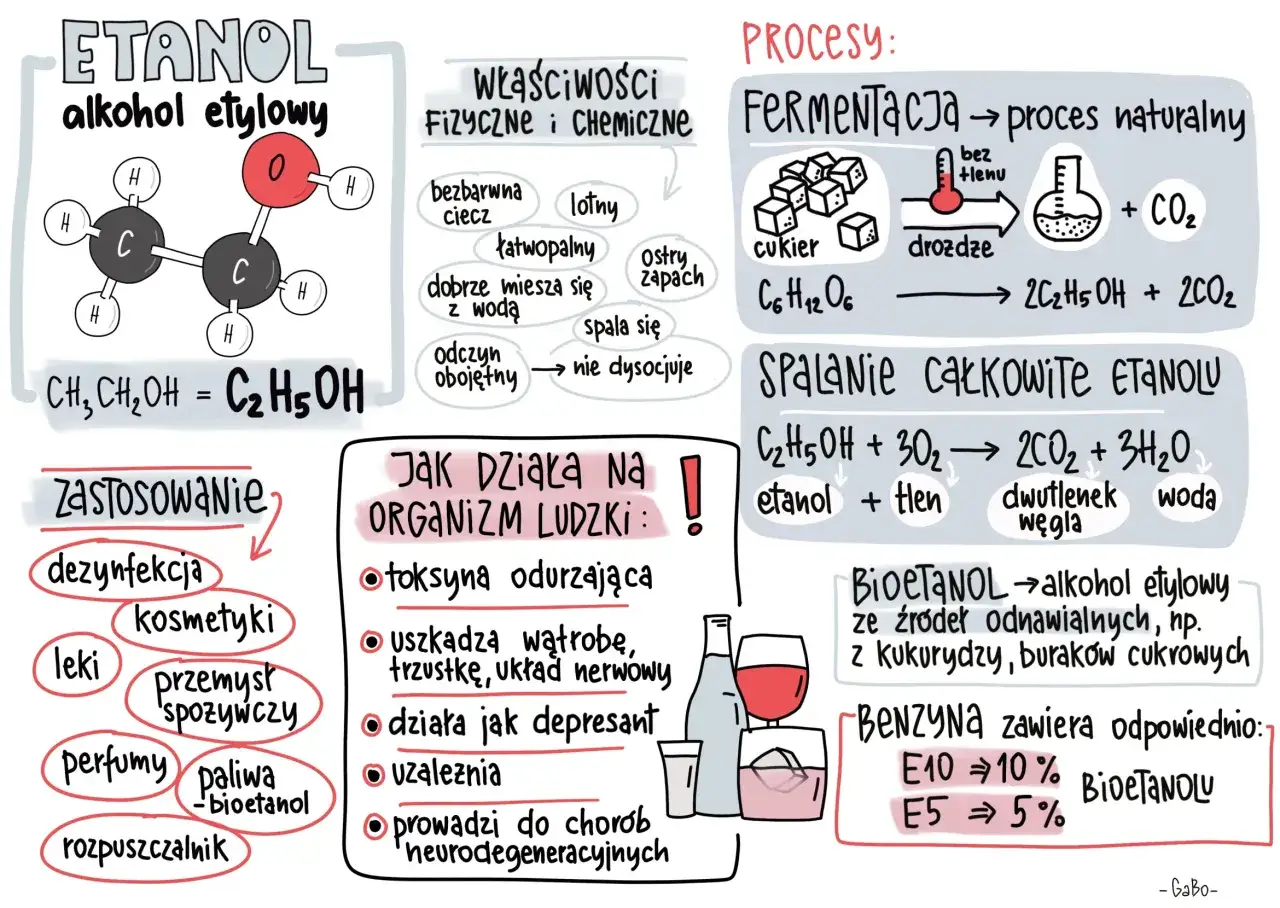 ETANOL
alkohol etylowy
H
O
H
H
C
C
H
H
H
CH₃CH₂OH = C₂H₅OH
WŁAŚCIWOŚCI
FIZYCZNE i CHEMICZNE
bezbarwna
ciecz
lotny
łatwopalny
ostry
zapach
dobrze miesza się
z wodą
spala się
odczyn
obojętny → nie dysocjuje
PROCESY:
FERMENTACJA → proces naturalny
bez
tlenu
cukier
drożdże
+ CO₂
C₆H₁₂O₆ → 2C₂H₅OH + 2CO₂
SPALANIE CAŁKOWITE ETANOLU
C₂H₅OH + 3O₂ → 2CO₂ + 3H₂O
etanol + tlen
dwutlenek
węgla
woda
BIOETANOL → alkohol etylowy
ze źródeł odnawialnych, np.
z kukurydzy, buraków cukrowych
BENZYNA zawiera odpowiednio:
E10 ⇒ 10 %
E5 ⇒ 5 %
BIOETANOLU
ZASTOSOWANIE
dezynfekcja
kosmetyki
leki
przemysł
spożywczy
perfumy
paliwa
-bioetanol
rozpuszczalnik
JAK DZIAŁA NA
ORGANIZM LUDZKI: !
toksyna odurzająca
uszkadza wątrobę,
trzustkę, układ nerwowy
działa jak depresant
uzależnia
prowadzi do chorób
neurodegeneracyjnych
-GaBo-